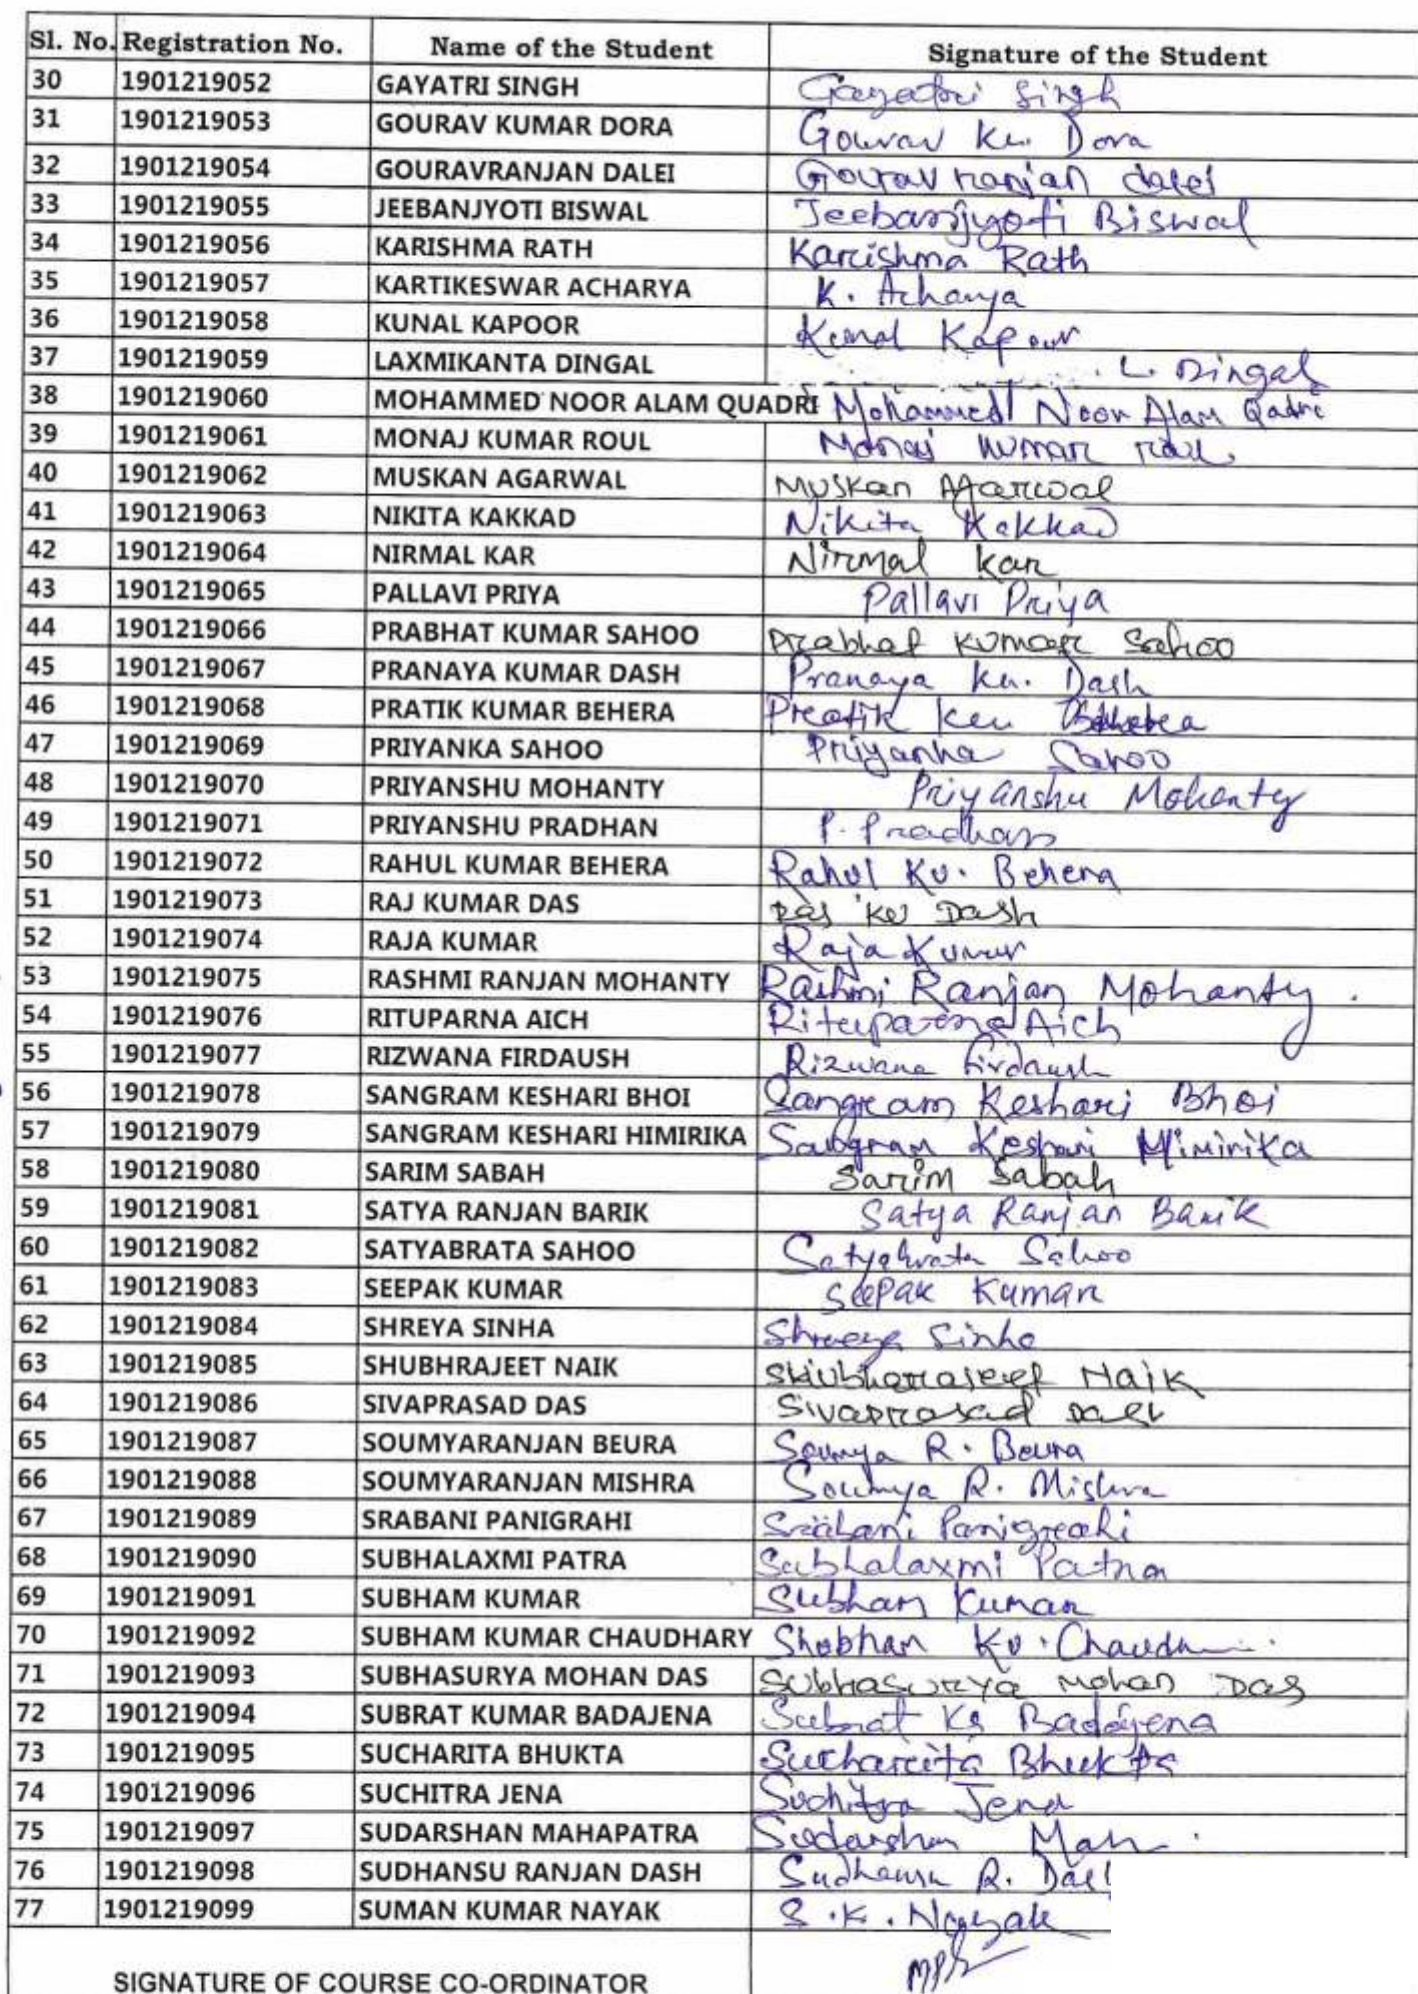 Sl. No. Registration No. Name of the Student Signature of the Student
30 1901219052 GAYATRI SINGH Gayatri Singh
31 1901219053 GOURAV KUMAR DORA Gourav Ku. Dora
32 1901219054 GOURAVRANJAN DALEI Gourav ranjan dalei
33 1901219055 JEEBANJYOTI BISWAL Jeebanjyoti Biswal
34 1901219056 KARISHMA RATH Karishma Rath
35 1901219057 KARTIKESWAR ACHARYA K. Acharya
36 1901219058 KUNAL KAPOOR Kunal Kapoor
37 1901219059 LAXMIKANTA DINGAL L. Dingal
38 1901219060 MOHAMMED NOOR ALAM QUADRI Mohammed Noor Alam Qadri
39 1901219061 MONAJ KUMAR ROUL Monaj kumar roul
40 1901219062 MUSKAN AGARWAL Muskan Agarwal
41 1901219063 NIKITA KAKKAD Nikita Kakkad
42 1901219064 NIRMAL KAR Nirmal kar
43 1901219065 PALLAVI PRIYA Pallavi Priya
44 1901219066 PRABHAT KUMAR SAHOO Prabhat kumar Sahoo
45 1901219067 PRANAYA KUMAR DASH Pranaya Ku. Dash
46 1901219068 PRATIK KUMAR BEHERA Pratik Ku Behera
47 1901219069 PRIYANKA SAHOO Priyanka Sahoo
48 1901219070 PRIYANSHU MOHANTY Priyanshu Mohanty
49 1901219071 PRIYANSHU PRADHAN P. Pradhan
50 1901219072 RAHUL KUMAR BEHERA Rahul Ku. Behera
51 1901219073 RAJ KUMAR DAS Raj Ku Dash
52 1901219074 RAJA KUMAR Raja Kumar
53 1901219075 RASHMI RANJAN MOHANTY Rashmi Ranjan Mohanty.
54 1901219076 RITUPARNA AICH Rituparna Aich
55 1901219077 RIZWANA FIRDAUSH Rizwana Firdaush
56 1901219078 SANGRAM KESHARI BHOI Sangram Keshari Bhoi
57 1901219079 SANGRAM KESHARI HIMIRIKA Sangram Keshari Himirika
58 1901219080 SARIM SABAH Sarim Sabah
59 1901219081 SATYA RANJAN BARIK Satya Ranjan Barik
60 1901219082 SATYABRATA SAHOO Satyabrata Sahoo
61 1901219083 SEEPAK KUMAR Seepak Kumar
62 1901219084 SHREYA SINHA Shreeya Sinha
63 1901219085 SHUBHRAJEET NAIK Shubhrajeet Naik
64 1901219086 SIVAPRASAD DAS Sivaprasad
65 1901219087 SOUMYARANJAN BEURA Soumya R. Beura
66 1901219088 SOUMYARANJAN MISHRA Soumya R. Mishra
67 1901219089 SRABANI PANIGRAHI Srabani Panigrahi
68 1901219090 SUBHALAXMI PATRA Subhalaxmi Patra
69 1901219091 SUBHAM KUMAR Subham Kumar
70 1901219092 SUBHAM KUMAR CHAUDHARY Shobhan Ku.
71 1901219093 SUBHASURYA MOHAN DAS Subhasurya Mohan Das
72 1901219094 SUBRAT KUMAR BADAJENA Subrat Ku Badajena
73 1901219095 SUCHARITA BHUKTA Sucharita Bhukta
74 1901219096 SUCHITRA JENA Suchitra Jena
75 1901219097 SUDARSHAN MAHAPATRA Sudarshan
76 1901219098 SUDHANSU RANJAN DASH Sudhansu R. Das
77 1901219099 SUMAN KUMAR NAYAK S.K. Nayak
SIGNATURE OF COURSE CO-ORDINATOR